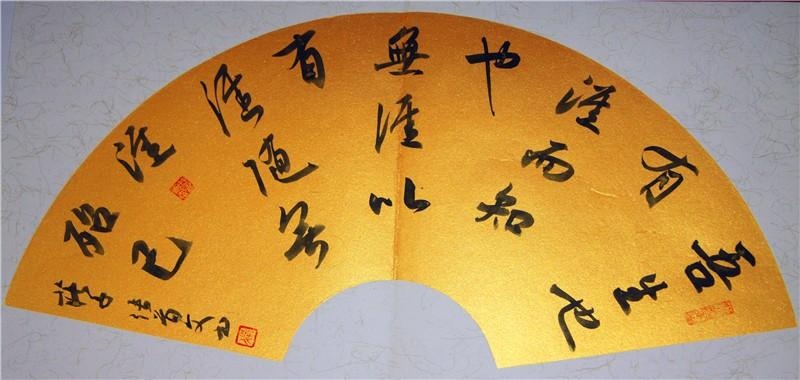 吾生也
有
涯而知
也
無涯以
有
涯随无
涯
殆已
莊子